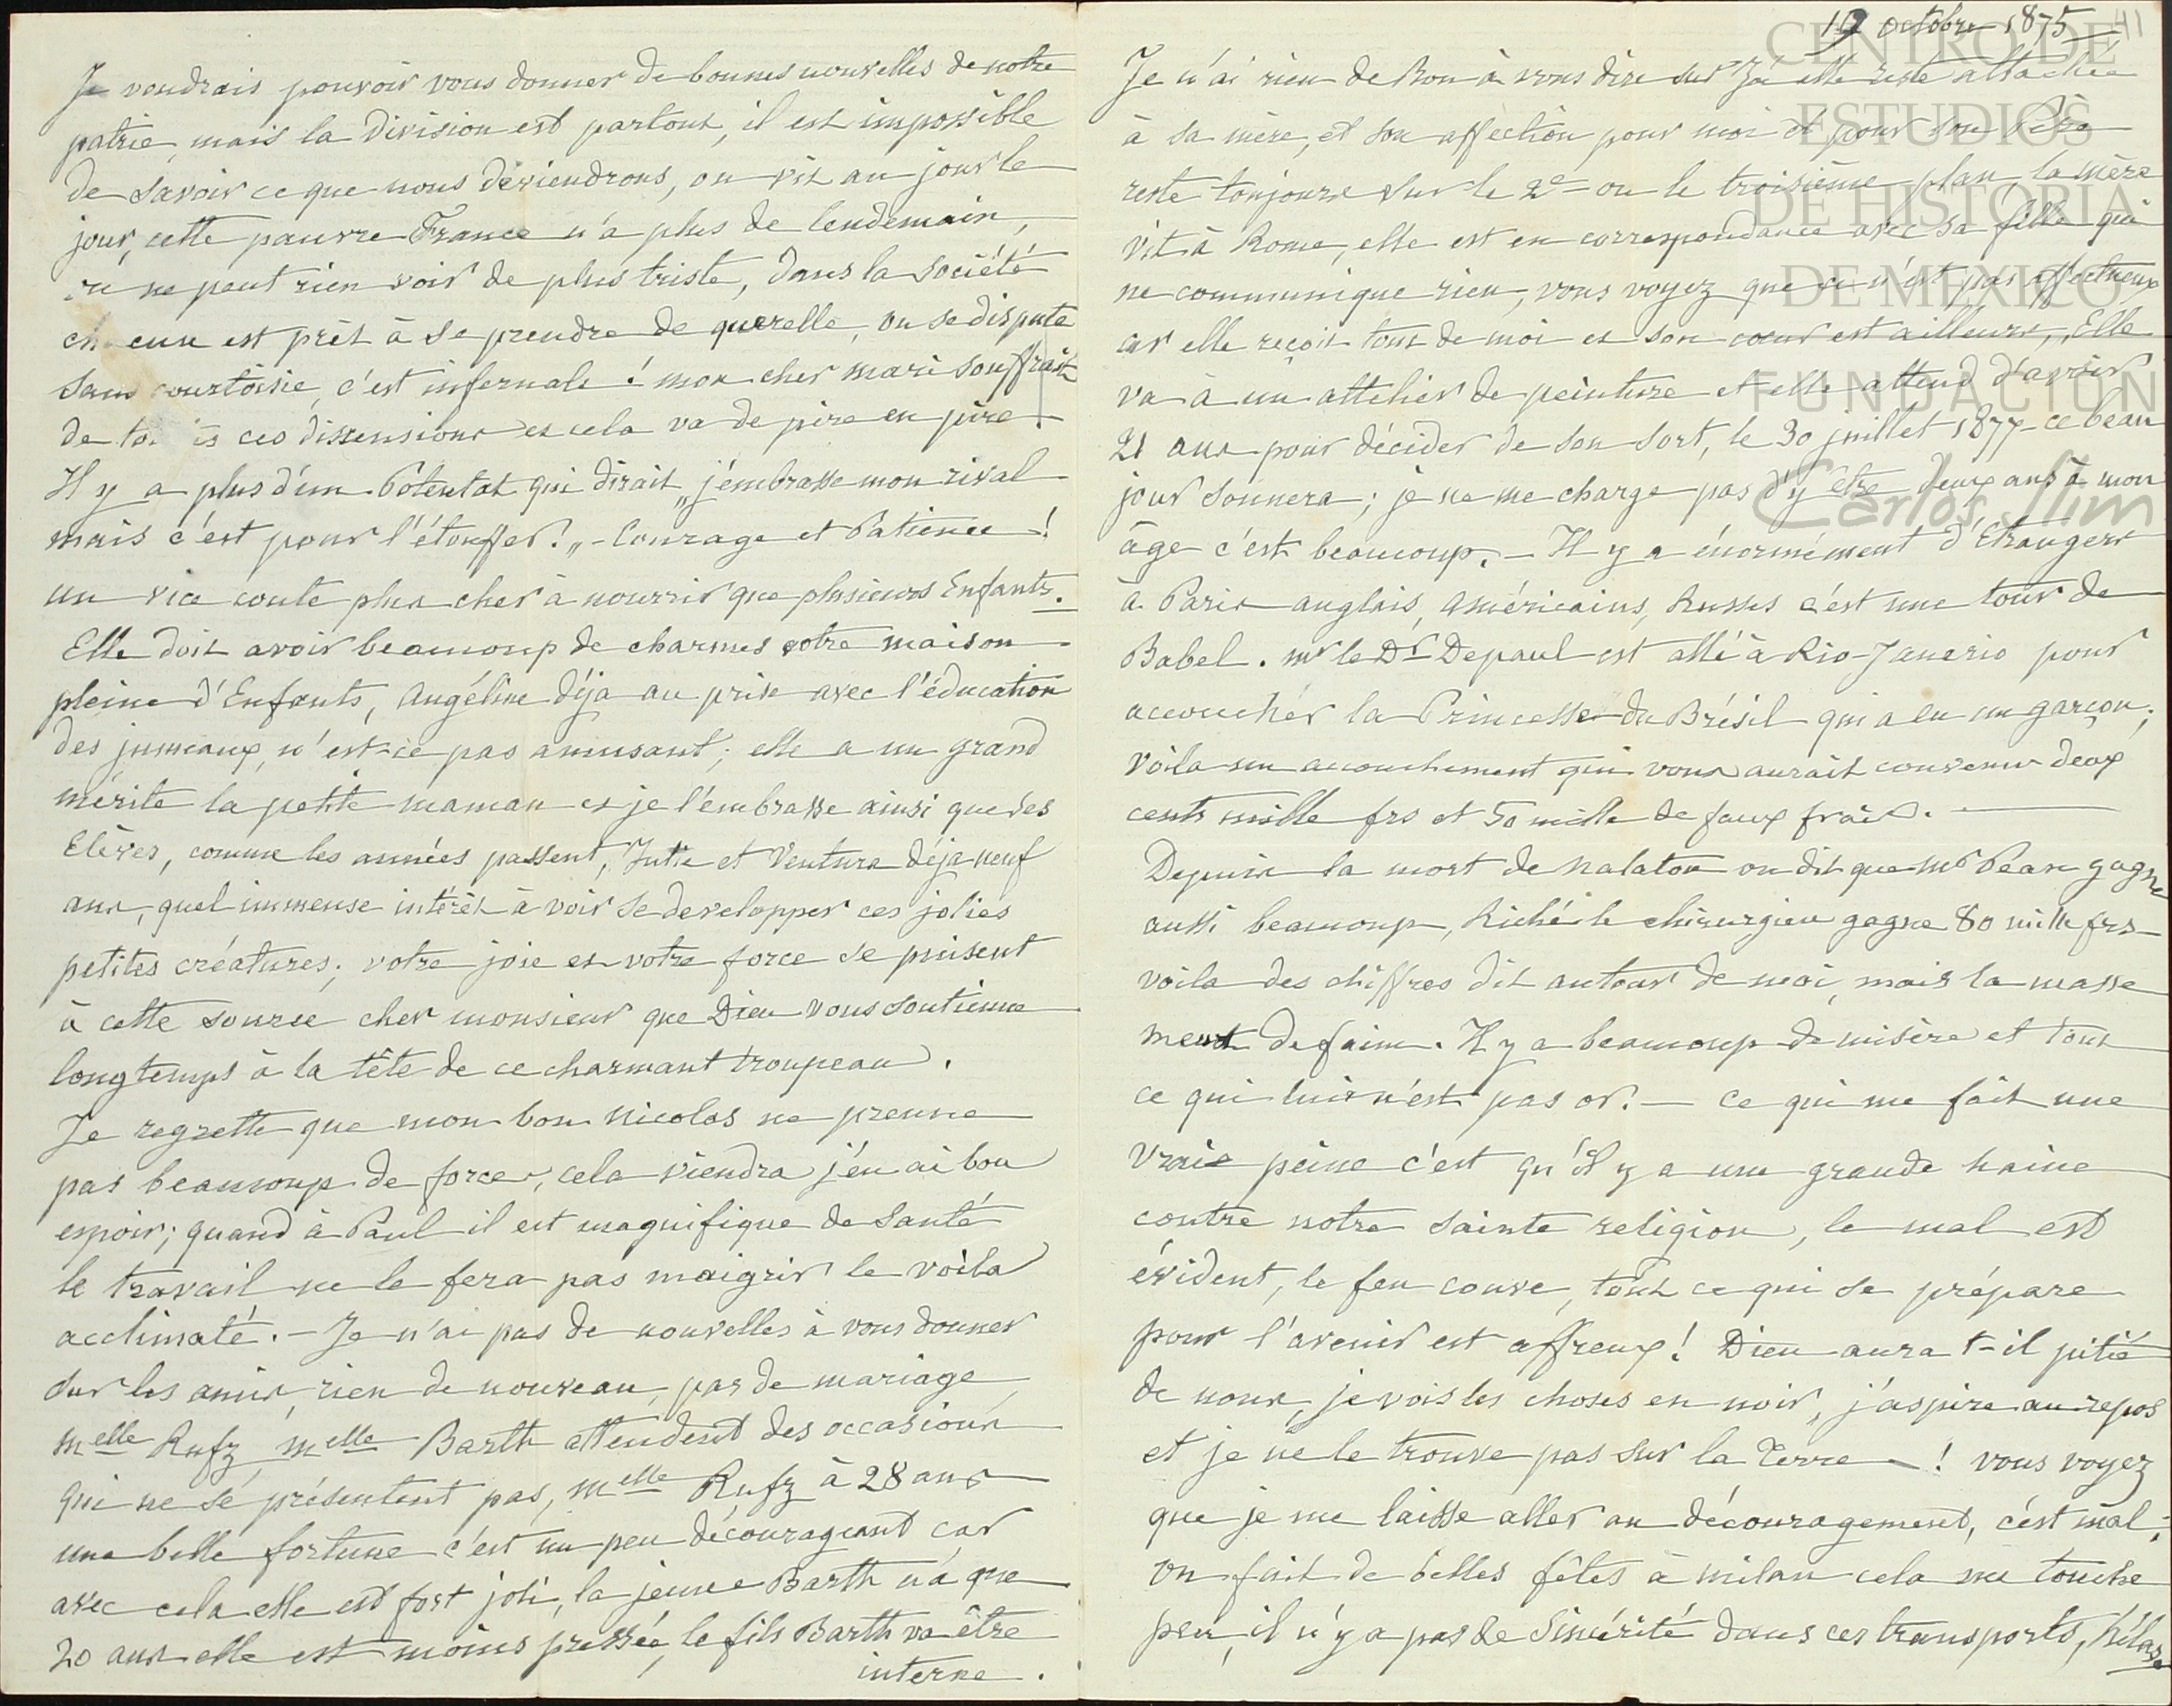 Je voudrais pouvoir vous donner de bonnes nouvelles de notre
patrie, mais la division est partout, il est impossible
de savoir ce que nous deviendrons, on vit au jour le
jour, cette pauvre France n'a plus de lendemain,
on ne peut rien voir de plus triste, dans la société
chacun est prêt à se prendre de querelle, on se dispute
sans courtoisie, c'est infernale ! mon cher mari souffrait
de toutes ces dissensions et cela va de pire en pire.
Il y a plus d'un Potentat qui dirait „j'embrasse mon rival
mais c'est pour l'étouffer! „ - Courage et Patience !
un vice coute plus cher à nourrir que plusieurs Enfants.
Elle doit avoir beaucoup de charmes votre maison
pleine d'Enfants, Angéline déja au prise avec l'éducation
des jumeaux, n'est-ce pas amusant; elle a un grand
mérite la petite maman et je l'embrasse ainsi que ses
Elèves, comme les années passent, Julie et Ventura déja neuf
ans, quel immense intérêt à voir se developper ces jolies
petites créatures; votre joie et votre force se puisent
à cette source cher monsieur que Dieu vous soutienne
longtemps à la tête de ce charmant troupeau.
Je regrette que mon bon Nicolas ne prenne
pas beaucoup de force, cela viendra j'en ai bon
espoir; quand à Paul il est magnifique de santé
le travail ne le fera pas maigrir le voila
acclimaté. - Je n'ai pas de nouvelles à vous donner
sur les amis, rien de nouveau, pas de mariage,
Melle Rufz, Melle Barth attendent des occasions
qui ne se présentent pas, Melle Rufz à 28 ans
une belle fortune c'est un peu décourageant car
avec cela elle est fort joli, la jeune Barth n'a que
20 ans elle est moins pressée, le fils Barth va être
interne.
19 octobre 1875 41
Je n'ai rien de bon à vous dire sur elle reste attachée
à sa mère, et son affection pour moi et pour son Père
reste toujours sur le 2e ou le troisième plan, la mère
vit à Rome, elle est en correspondance avec sa fille qui
ne communique rien, vous voyez que ce n'est pas affectueux
car elle reçoit tout de moi et son coeur est ailleurs, Elle
va à un attelier de peinture et elle attend d'avoir
21 ans pour décider de son sort, le 30 juillet 1877 ce beau
jour sonnera; je ne me charge pas d'y être deux ans à mon
âge c'est beaucoup. - Il y a énormément d'Etrangers
à Paris anglais, américains, Russes c'est une tour de
Babel. Mr le Dr Depaul est allé à Rio-Janerio pour
accouchér la Princesse du Brésil qui a eu un garçon;
voila un accouchement qui vous aurait convenu deux
cents mille frs et 50 mille de faux frais.
Depuis la mort de Nalaton on dit que Mr Péan gagne
aussi beaucoup, Riché le chirurgien gagne 80 mille frs
voila des chiffres dit autour de moi, mais la masse
meurt de faim. Il y a beaucoup de misère et tout
ce qui luis n'est pas or. - ce qui me fait une
vraie peine c'est qu'il y a une grande haine
contre notre sainte religion, le mal est
évident, le feu couve, tout ce qui se prépare
pour l'avenir est affreux! Dieu aura t-il pitié
de nous, je vois les choses en noir, j'aspire au repos
et je ne le trouve pas sur la Terre ! vous voyez
que je me laisse aller au découragement, c'est mal;
on fait de belles fêtes à milan cela me touche
peu, il n'y a pas de sincérité dans ces transports, hélas.
CENTRO DE
ESTUDIOS
DE HISTORIA
DE MÉXICO
FUNDACIÓN
Carlos Slim